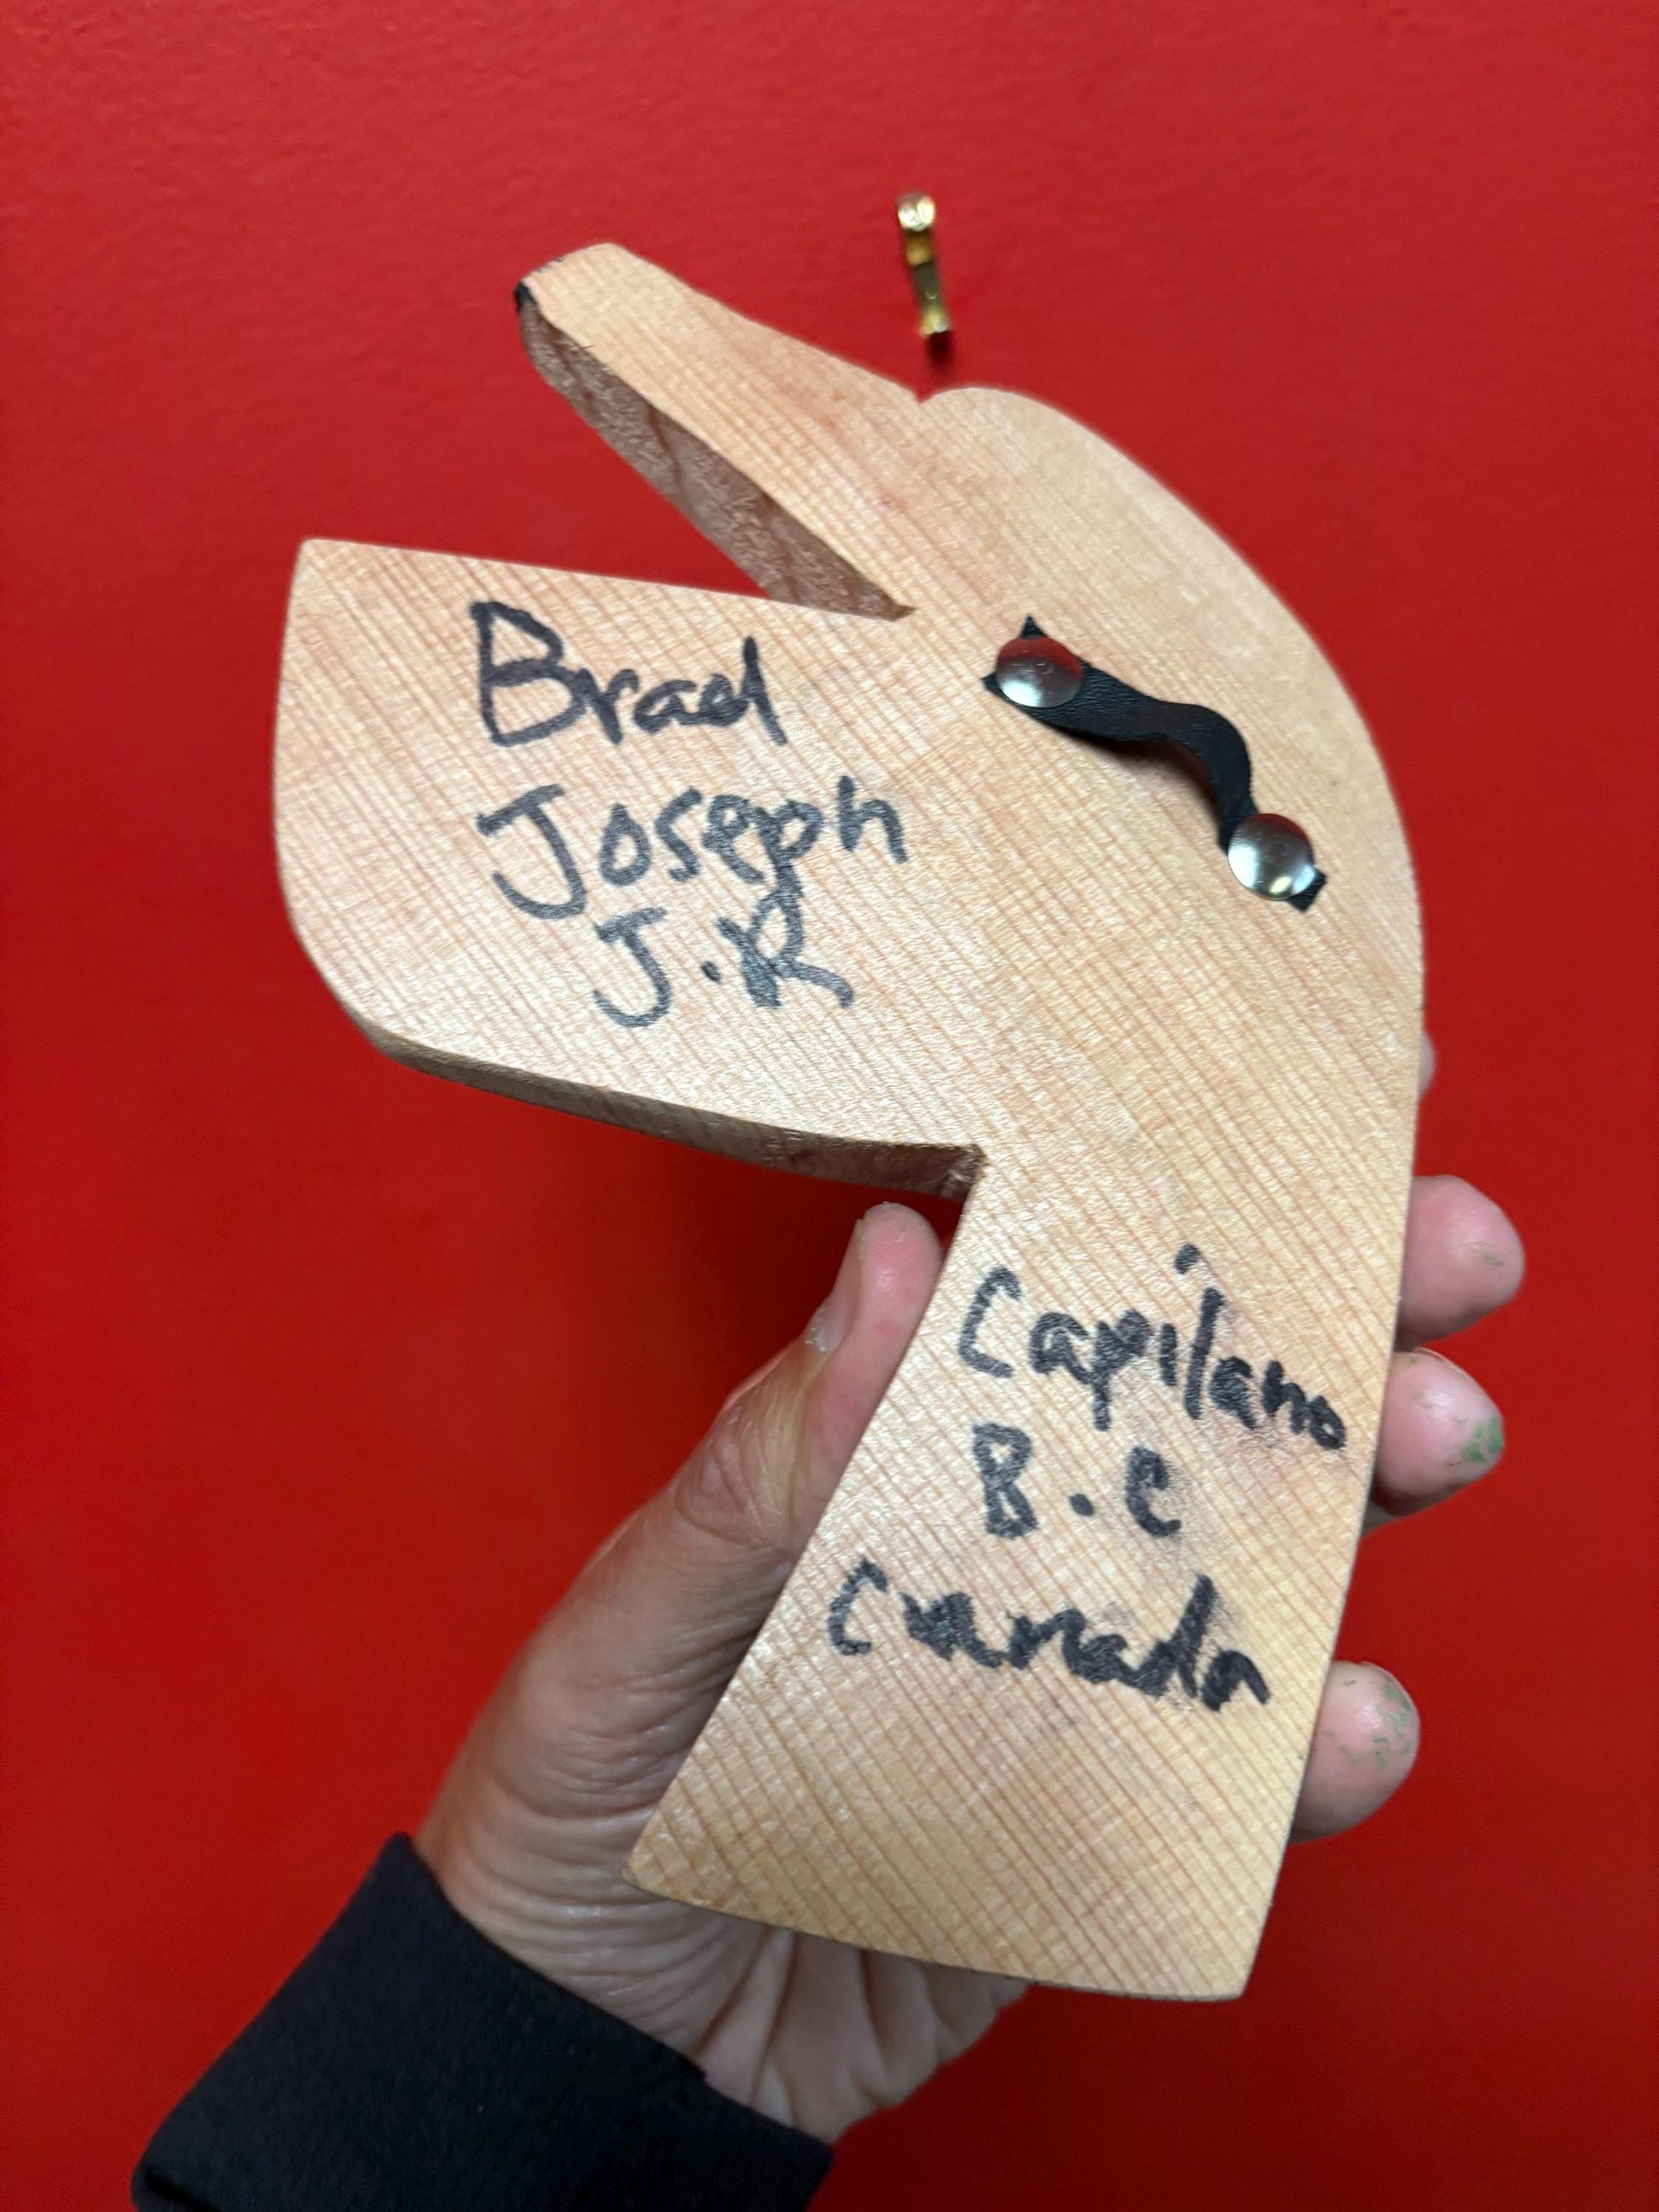 Brad
Joseph
J.R
Capilano
B.C
Canada